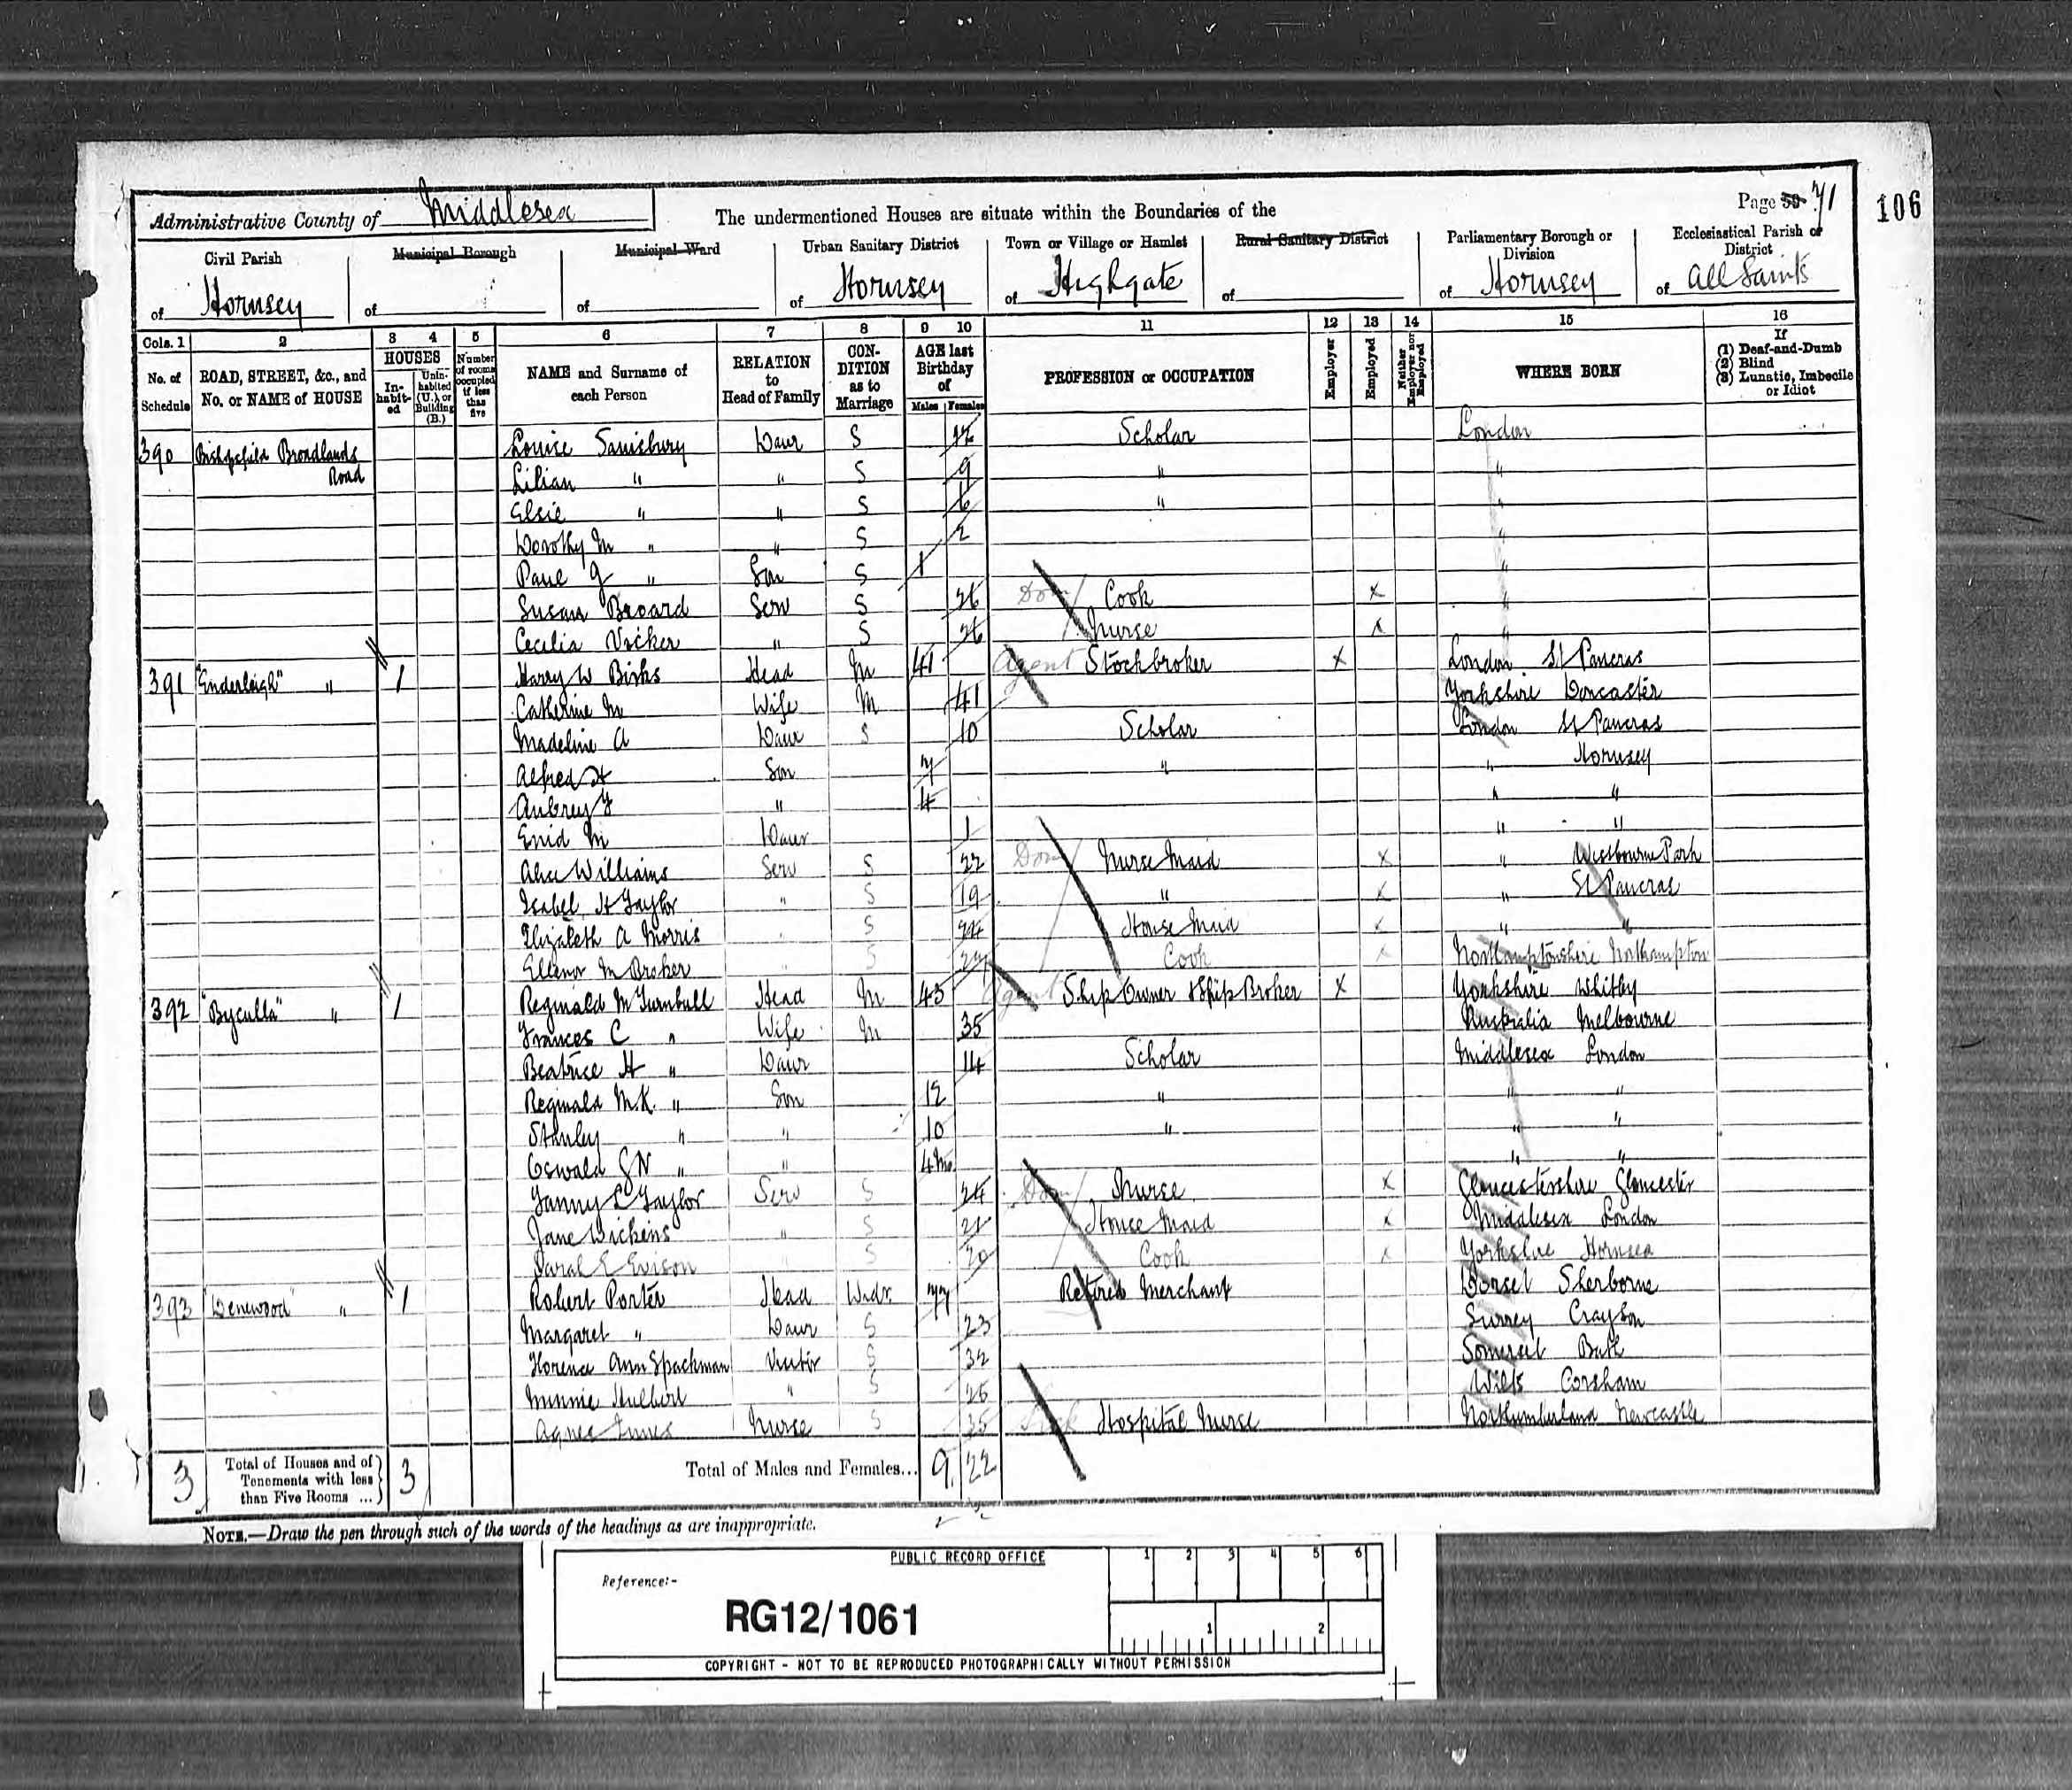 Administrative County of Middlesex
The undermentioned Houses are situate within the Boundaries of the
Page 71
106
Civil Parish
of Hornsey
Municipal Borough
of
Municipal Ward
of
Urban Sanitary District
of Hornsey
Town or Village or Hamlet
of Highgate
Rural Sanitary District
of
Parliamentary Borough or
Division
of Hornsey
Ecclesiastical Parish or
District
of All Saints
Cols. 1 2 3 4 5 6 7 8 9 10 11 12 13 14 15 16
No. of Schedule
ROAD, STREET, &c., and No. or NAME of HOUSE
HOUSES
In-habit-ed
Unin-habited (U.), or Building (B.)
Number of rooms occupied if less than five
NAME and Surname of each Person
RELATION to Head of Family
CON-DITION as to Marriage
AGE last Birthday of
Males Females
PROFESSION or OCCUPATION
Employer
Employed
Neither Employer nor Employed
WHERE BORN
If
(1) Deaf-and-Dumb
(2) Blind
(3) Lunatic, Imbecile or Idiot
390 Broadlands Road Louise Daur S 12 Scholar London
Lilian " " S 9 " "
Elsie " " S 6 " "
Dorothy M " " S 2 "
Paul G " Son S 1 "
Susan Serv S 26 Dom Cook x "
Cecilia Vicker " S 26 Nurse x "
391 "Enderleigh" " 1 Harry W Birks Head M 41 Agent Stockbroker x London St Pancras
Catherine M Wife M 41 Yorkshire Doncaster
Madeline A Daur S 10 Scholar London St Pancras
Alfred H Son 7 " " Hornsey
Aubrey " 4 " "
Enid M Daur 1 " "
Alice Williams Serv S 22 Dom Nurse Maid x " Westbourne Park
Isabel H Taylor " S 19 " x " St Pancras
Elizabeth A Morris S House Maid x " "
Eleanor M S Cook x Northamptonshire Northampton
392 "Byculla" " 1 Reginald M Turnbull Head M 43 Agent Ship Owner & Ship Broker x Yorkshire Whitby
Frances C " Wife M 35 Australia Melbourne
Beatrice H " Daur 14 Scholar Middlesex London
Reginald M.K. " Son 12 " " "
Stanley " " 10 " " "
Oswald " " 4 Mo " "
Fanny L Taylor Serv S 24 Dom Nurse x Gloucestershire Gloucester
Jane Dickens " S 21 House Maid x Middlesex London
Sarah E Evison S 20 Cook x Yorkshire Hornsea
393 "Denewood" " 1 Robert Porter Head Widr 77 Retired Merchant Dorset Sherborne
Margaret " Daur S 23 Surrey Croydon
Florence Ann Spackman Visitor S 32 Somerset Bath
Minnie Hulbert " S 26 Wilts Corsham
Agnes Nurse S 35 Sick Hospital Nurse Northumberland Newcastle
3
Total of Houses and of Tenements with less than Five Rooms ...
3
Total of Males and Females... 9 22
NOTE.—Draw the pen through such of the words of the headings as are inappropriate.
PUBLIC RECORD OFFICE
1 2 3 4 5 6
Reference:-
RG12/1061
1 2
COPYRIGHT - NOT TO BE REPRODUCED PHOTOGRAPHICALLY WITHOUT PERMISSION